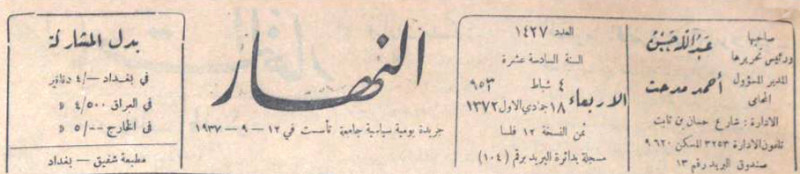 صاحبها
ورئيس تحريرها
عبدالله حسين
المدير المسؤول
المحامي
أحمد مدحت
الادارة : شارع حسان بن ثابت
تلفون الادارة ٣٢٥٣ المسكن ٩٦٢٠
صندوق البريد رقم ١٣
العدد ١٤٢٧
السنة السادسة عشرة
الاربعاء
٤ شباط ٩٥٣
١٨ جمادي الاول ١٣٧٢
ثمن النسخة ١٢ فلسا
مسجلة بدائرة البريد برقم (١٠٤)
النهار
جريدة يومية سياسية جامعة تأسست في ١٢ - ٩ - ١٩٣٧
بدل المشاركة
في بغداد -/٤ دنانير
في العراق ٤/٥٠٠ »
في الخارج ٥/٠٠ »
مطبعة شفيق - بغداد